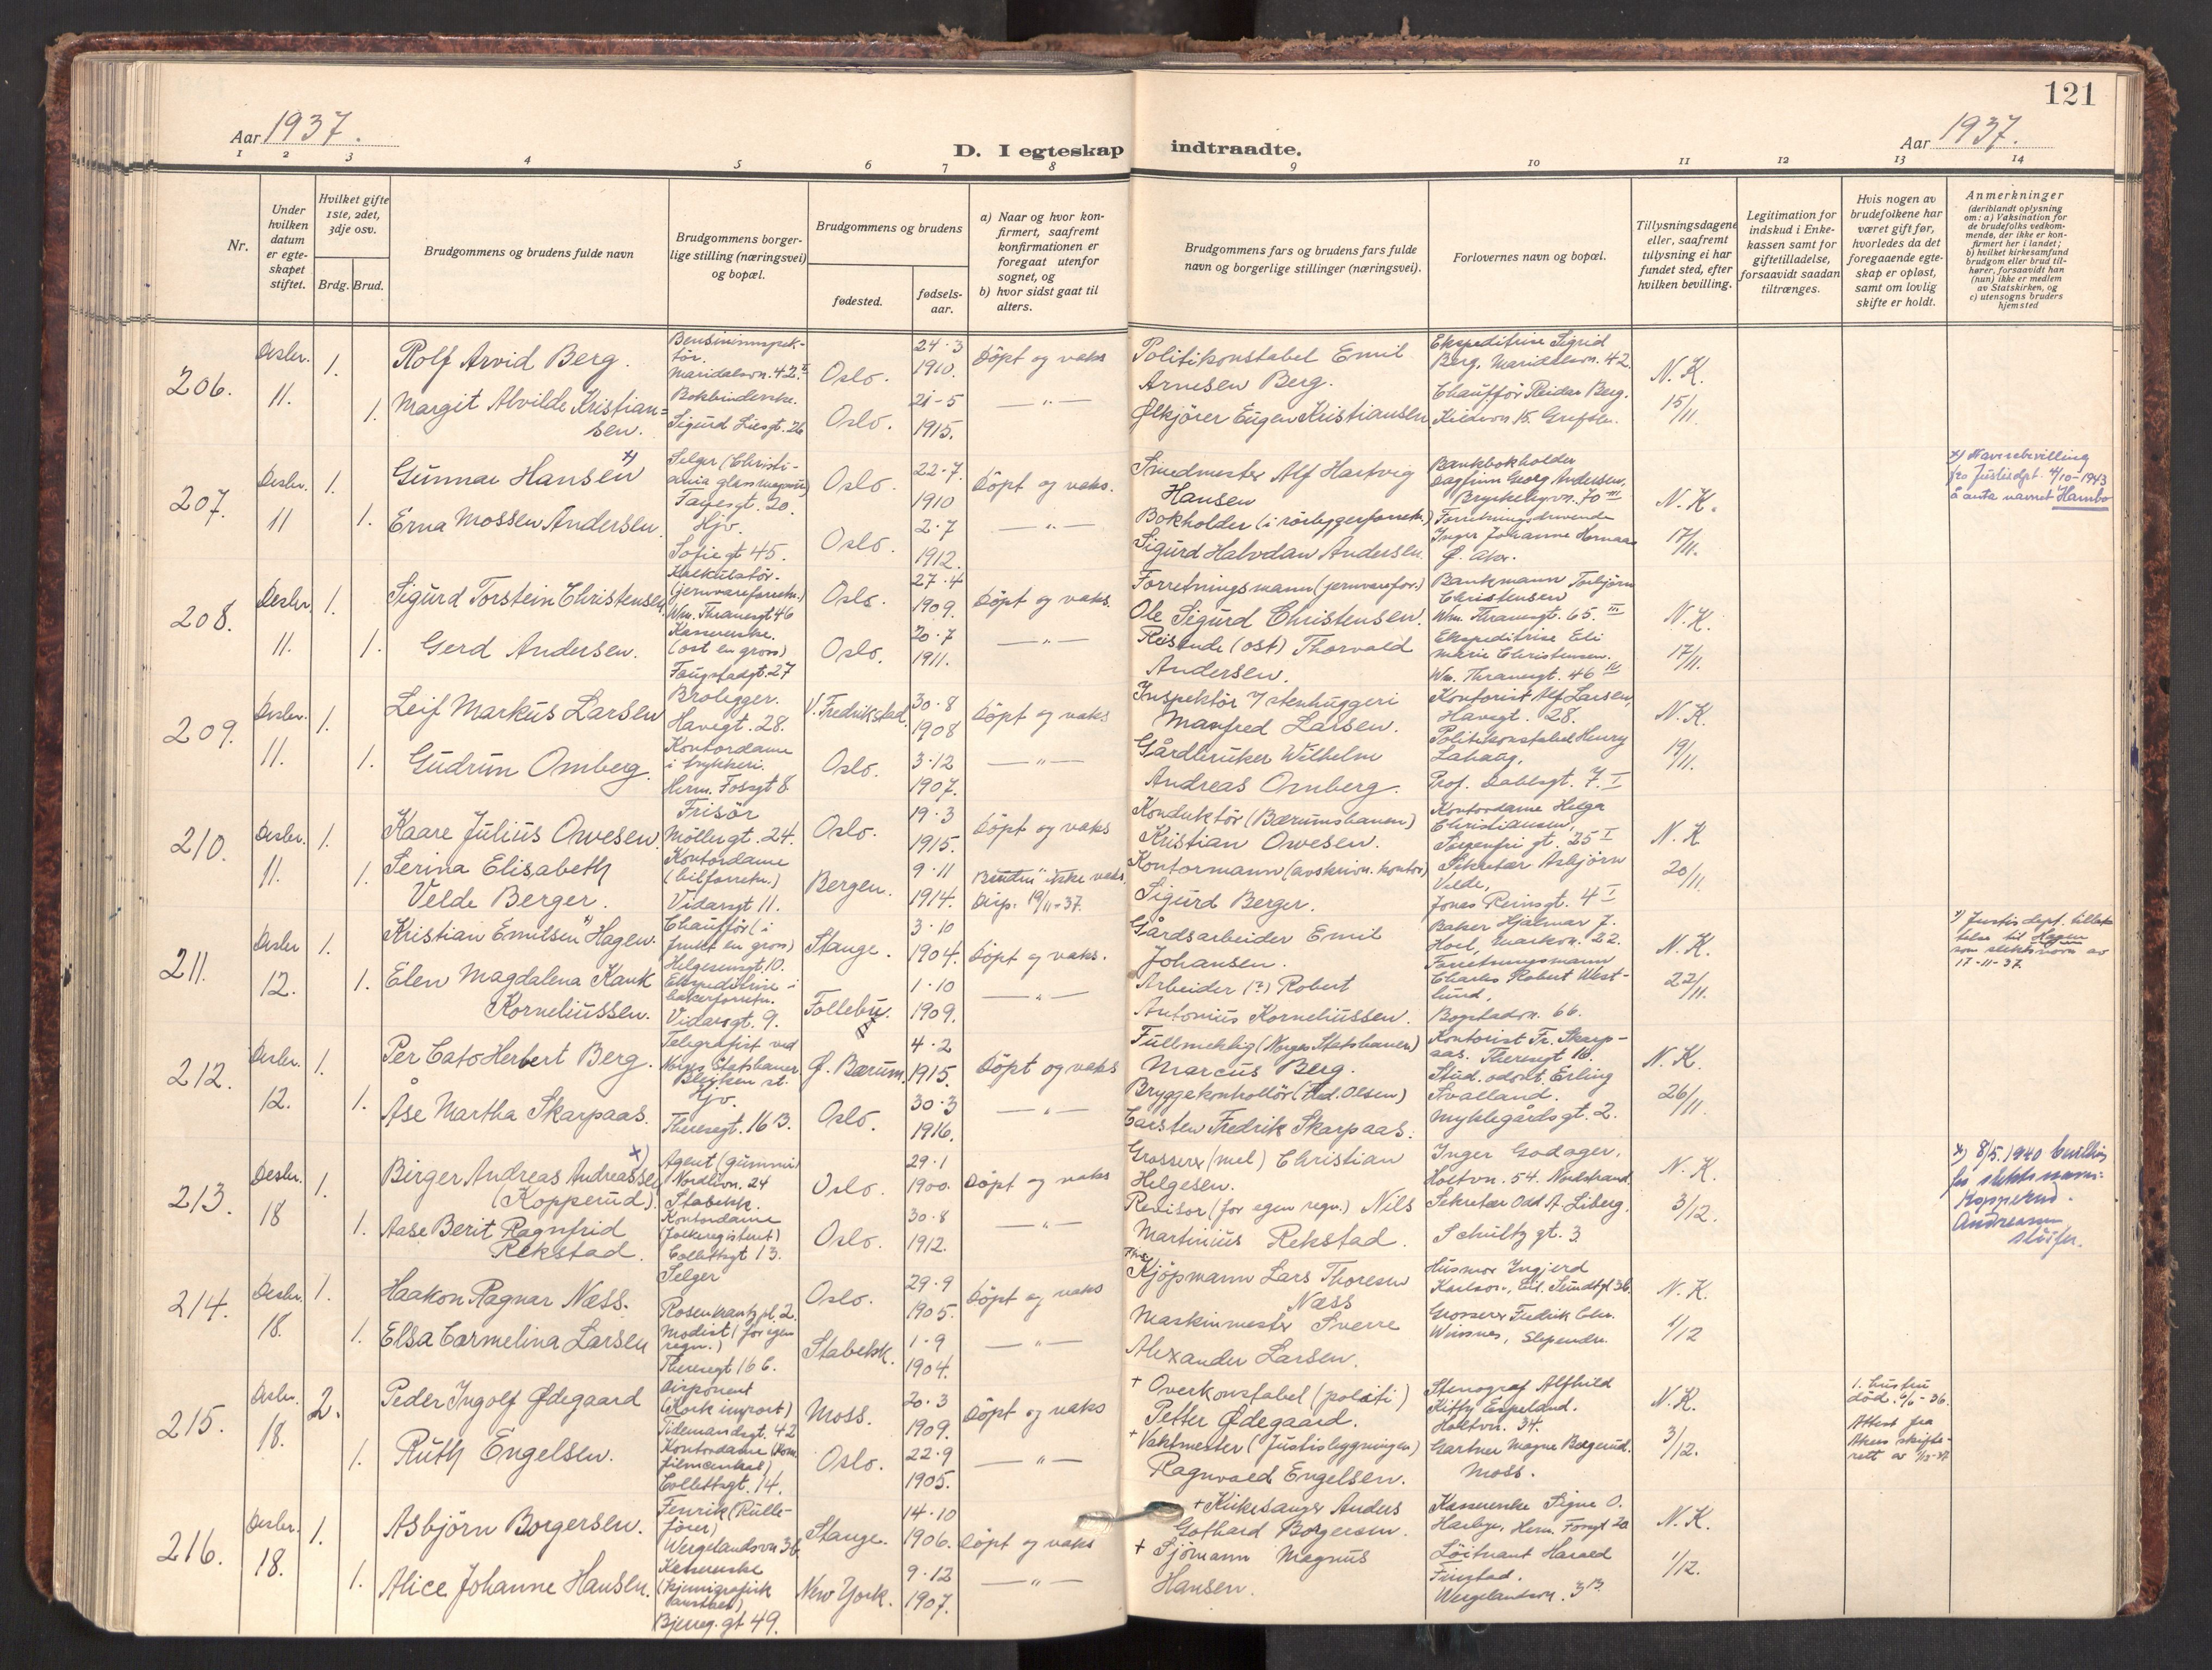 121
Aar 1937.
D. I egteskap indtraadte.
Aar 1937.
1 2 3 4 5 6 7 8 9 10 11 12 13 14
Nr.
Under hvilken datum er egteskapet stiftet.
Hvilket gifte 1ste, 2det, 3dje osv.
Brdg. Brud.
Brudgommens og brudens fulde navn
Brudgommens borgerlige stilling (næringsvei) og bopæl.
Brudgommens og brudens
fødested.
fødselsaar.
a) Naar og hvor konfirmert, saafremt konfirmationen er foregaat utenfor sognet, og
b) hvor sidst gaat til alters.
Brudgommens fars og brudens fars fulde navn og borgerlige stillinger (næringsvei).
Forlovernes navn og bopæl.
Tillysningsdagene eller, saafremt tillysning ei har fundet sted, efter hvilken bevilling.
Legitimation for indskud i Enkekassen samt for giftetilladelse, forsaavidt saadan tiltrænges.
Hvis nogen av brudefolkene har været gift før, hvorledes da det foregaaende egteskap er opløst, samt om lovlig skifte er holdt.
Anmerkninger
(deriblandt oplysning om: a) Vaksination for de brudefolks vedkommende, der ikke er konfirmert her i landet; b) hvilket kirkesamfund brudgom eller brud tilhører, forsaavidt han (hun) ikke er medlem av Statskirken, og c) utensogns bruders hjemsted
206. Desbr. 11. 1.
Rolf Arvid Berg.
Maridalsvn. 42 II
Oslo.
24-3 1910.
Döpt og vaks
Politikonstabel Emil Arnesen Berg.
Ekspeditrise Sigrid Berg, Maridalsvn. 42.
N.K. 15/11.
1. Margit Alvilde Kristiansen.
Bokbinderske.
Sigurd Liesgt. 26
Oslo.
21-5 1915.
— " —
Ølkjører Eugen Kristiansen
Chaufför Reidar Berg.
207. Desbr. 11 1.
Gunnar Hansen x)
Selger (Christiania glasmagasin)
Oslo.
22-7 1910
Döpt og vaks.
Smedmester Alf Hartvig Hansen
Bankbokholder Dagfinn Georg Andersen,
N.K. 17/11.
x) Navnebevilling fra Justisdept. 4/10-1943 å anta navnet Hambo
1. Erna Mossen Andersen.
Hjv.
Sofiegt 45.
Oslo.
2-7 1912.
— " —
Bokholder (i rörleggerforretn.)
Sigurd Halvdan Andersen.
Forretningsdrivende Inger Johanne
Ø. Aker.
208. Desbr. 11. 1.
Sigurd Torstein Christensen
Kalkulatör.
(jernvareforretn.)
Wm. Thranesgt 46
Oslo.
27-4 1909.
Döpt og vaks.
Forretningsmann (jernvarefor.)
Ole Sigurd Christensen.
Bankmann Torbjörn Christensen
Wm. Thranesgt. 65. III
N.K. 17/11.
1. Gerd Andersen.
Kassererske.
(ost en gros)
Faugstadgt. 27
Oslo.
20-7 1911.
— " —
Reisende (ost) Thorvald Andersen.
Ekspeditrise Eli Marie Christensen.
Wm. Thranesgt. 46 IV
209. Desbr. 11. 1.
Leif Markus Larsen
Brolegger.
Havegt. 28.
V. Fredrikstad.
30-8 1908
Döpt og vaks
Inspektör i stenhuggeri
Manfred Larsen.
Kontorist Alf Larsen,
Havegt. 28.
N.K. 19/11.
1. Gudrun Omberg.
Kontordame i trykkeri.
Herm. Fossgt 8
Oslo.
3-12 1907.
— " —
Gårdbruker Wilhelm Andreas Omberg.
Politikonstabel Henry
Prof. Dahlsgt. 7. I
210. Desbr. 11. 1.
Kaare Julius Owesen.
Frisör
Möllergt. 24.
Oslo.
19-3 1915.
Döpt og vaks
Konduktör (Bærumsbanen)
Kristian Owesen.
Kontordame Helga Christiansen,
Sorgenfri gt. 25 I
N.K. 20/11.
1. Serina Elisabeth Velde Berger.
Kontordame (bilforretn.)
Vidarsgt 11.
Bergen.
9-11 1914.
Bruden ikke vaks.
Disp. 19/11-37.
Kontormann (avskrivn. kontor)
Sigurd Berger.
Sekretær Asbjörn Velde,
Jonas Reinsgt. 4 I
211. Desbr 12. 1.
Kristian Emilsen x) Hagen.
Chauffört (i frukt en gros)
Helgesensgt. 10.
Stange.
3-10 1904.
Döpt og vaks.
Gårdsarbeider Emil Johansen.
Baker Hjalmar J. Hoel,
N.K. 22/11.
x) Justis dept. tillatelse til Hagen som slektsnavn av 17-11-37.
1. Elen Magdalena Kank Korneliussen.
Ekspeditrise i bakerforretn.
Vidarsgt. 9.
Follebu.
1-10 1909.
— " —
Arbeider (?) Robert Antonius Korneliussen.
Forretningsmann Charles Robert Westlund,
Bogstadvn. 66.
212. Desbr. 12. 1.
Per Cato Herbert Berg.
Telegrafist ved Norges Statsbaner
Ø. Bærum.
4-2 1915.
Döpt og vaks
Fullmektig (Norges Statsbaner)
Marcus Berg.
Kontorist Fr. Skarpaas. Theresgt 16.
N.K. 26/11.
1. Åse Martha Skarpaas.
Hjv.
Theresegt. 16 B.
Oslo.
30-3 1916.
— " —
Bryggekontrollör (Fred. Olsen)
Carsten Fredrik Skarpaas.
Stud. odont. Erling Svalland.
Myklegårdsgt. 2.
213. Desbr. 18 1.
Birger Andreas Andreassen x)
(Kopperud)
Agent (gummi)
Nordlivn. 24
Stabekk.
Oslo.
29-1 1900.
Döpt og vaks
Grosserer (mel) Christian Helgesen.
Inger Godager,
Holtvn. 54. Nordstrand.
N.K. 3/12.
x) 8/5.1940 bevilling for slektsnavn: Kopperud. Andreassen sløifes.
1. Aase Berit Ragnfrid Rekstad.
Kontordame (folkeregisteret)
Collettsgt 13.
Oslo.
30-8 1912.
— " —
Revisor (for egen regn.) Nils Martinius Rekstad.
Sekretær Odd A. Liberg,
Schultz gt. 3
214. Desbr. 18. 1.
Haakon Ragnar Næss.
Selger
Rosenkrantz pl. 2.
Oslo.
29-9 1905.
Döpt og vaks
Kjöpmann Lars Thoresen Næss
Husmor Ingjerd Karlson, Eil. Sundtgt 36.
N.K. 1/12
1. Elsa Carmelina Larsen
Modist (for egen regn.)
Theresegt 16 C.
Stabekk.
1-9 1904.
— " —
Maskinmester Sverre Alexander Larsen.
Grosserer Fredrik Chr. Winsnes, Slependen.
215. Desbr. 18. 2.
Peder Ingolf Ødegaard
Disponent
(Kork import)
Tidemandsgt. 42
Moss.
20-3 1909.
Döpt og vaks
+ Overkonstabel (politi)
Petter Ødegaard.
Stenograf Alfhild Kitty Espeland.
Holtvn. 34.
N.K. 3/12.
1. hustru död. 6/6-36.
Attest fra Akers skifterett av 1/12-37
1. Ruth Engelsen.
Kontordame (Kom. filmcentral)
Collettsgt. 14.
Oslo.
22-9 1905.
— " —
+ Vaktmester (Justisbygningen)
Ragnvald Engelsen.
Gartner Magne Bøgerud.
Moss.
216. Desbr. 18. 1.
Asbjörn Borgersen.
Fenrik (Rulleförer)
Wergelandsvn 3b.
Stange.
14-10 1906.
Döpt og vaks
+ Kirkesanger Anders Gothard Borgersen.
Kassererske Signe O.
Herm. Fossgt 20
N.K. 1/12.
1. Alice Johanne Hansen.
Kassererske
(kjemigrafisk anstalt)
Bjerreg. gt 49.
New York.
9-12 1907.
— " —
+ Sjömann Magnus Hansen.
Löitnant Harald Finstad.
Wergelandsvn. 3 B.